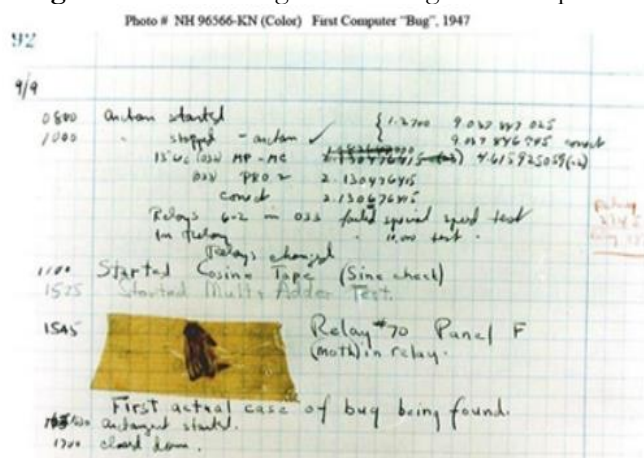 Photo # NH 96566-KN (Color) First Computer "Bug", 1947
92
9/9
0800 antan started
1000 " stopped - antan ✓
{ 1.2700 9.037 847 025
9.037 846 995 correct
13'uc (032) MP - MC 4.615925059(-2)
(033) PRO 2 2.130476415
correct 2.130676415
Relays 6-2 in 033 failed special speed test
in relay " 10.000 test .
Relays changed
1100 Started Cosine Tape (Sine check)
1525 Started Mult+ Adder Test.
1545 Relay #70 Panel F
(moth) in relay.
First actual case of bug being found.
antangent started.
1700 closed down.